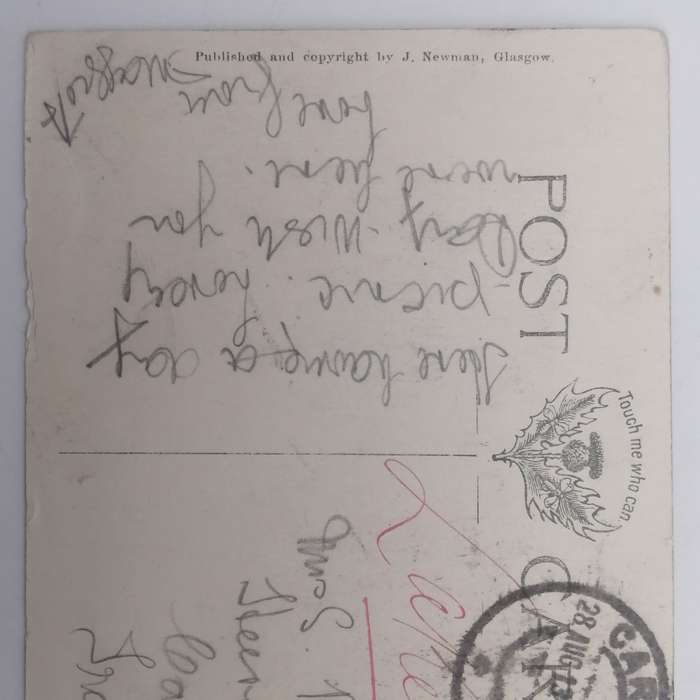 Published and copyright by J. Newman, Glasgow.
POST CA
Touch me who can
Here having a day
-picnic. Lovely
Day. Wish you
were here.
Love from
Mrs S.
28 AUG
CAR